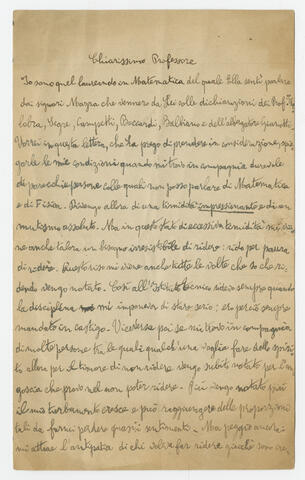 Chiarissimo Professore
Io sono quel laureando in Matematica del quale Ella sentì parlare
dai signori Mazza che vennero da Lei colle dichiarazioni dei Prof.
Segre, Boccardi, Balbiano e
Vorrei in questa lettera, che La prego di prendere in considerazione,
le mie condizioni quando mi trovo in compagnia durevole
di parecchie persone colle quali non posso parlare di Matematica
e di Fisica. Divengo allora di una timidità impressionante e di un
mutismo assoluto. Ma in questo stato di eccessiva timidità mi
ne anche talora un bisogno irresistibile di ridere: rido per paura
di ridere. Questo riso mi viene anche tutte le volte che so che ri-
dendo vengo notato. Così all'Istituto tecnico ridevo sempre quando
la disciplina mi imponeva di stare serio: er perciò sempre
mandato in castigo. Viceversa poi se mi trovo in compagnia
di molte persone tra le quali qualch'una voglia fare dello spirito
allora per il timore di non ridere vengo subito notato per l'an
goscia che provo nel non poter ridere. Più vengo notato più
il mio turbamento cresce e può raggiungere delle proporzioni
tali da farmi perdere quasi i sentimenti. Ma peggio ancora:
mi attira l'antipatia di chi voleva far ridere giacchè sono